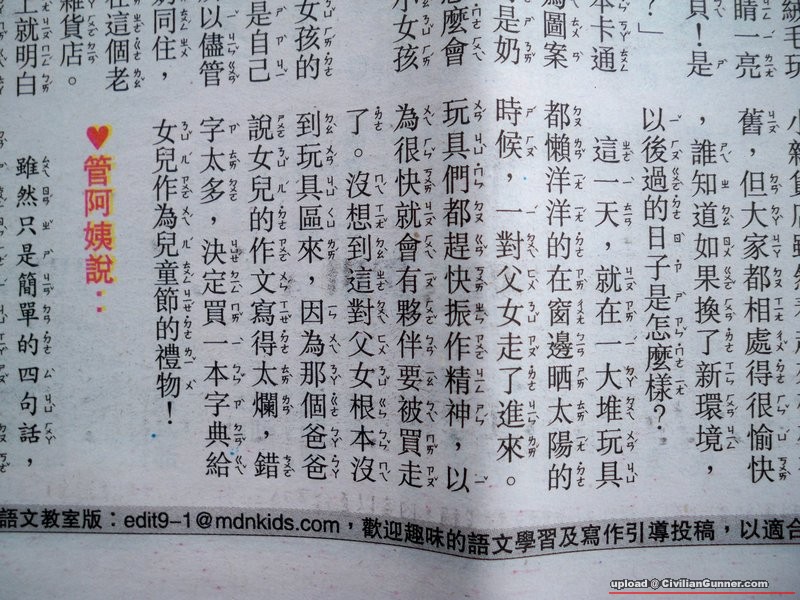 絨毛玩
睛一亮
貝！是
？」
本卡通
圖案
是奶
怎麼會
小女孩
女孩的
是自己
以儘管
同住，
在這個老
雜貨店。
上就明白
小雜貨店雖然
舊，但大家都相處得很愉快
，誰知道如果換了新環境，
以後過的日子是怎麼樣？
這一天，就在一大堆玩具
都懶洋洋的在窗邊晒太陽的
時候，一對父女走了進來。
玩具們都趕快振作精神，以
為很快就會有夥伴要被買走
了。沒想到這對父女根本沒
到玩具區來，因為那個爸爸
說女兒的作文寫得太爛，錯
字太多，決定買一本字典給
女兒作為兒童節的禮物！
♥管阿姨說：
雖然只是簡單的四句話，
語文教室版：edit9-1@mdnkids.com，歡迎趣味的語文學習及寫作引導投稿，以適合
upload @ CivilianGunner.com